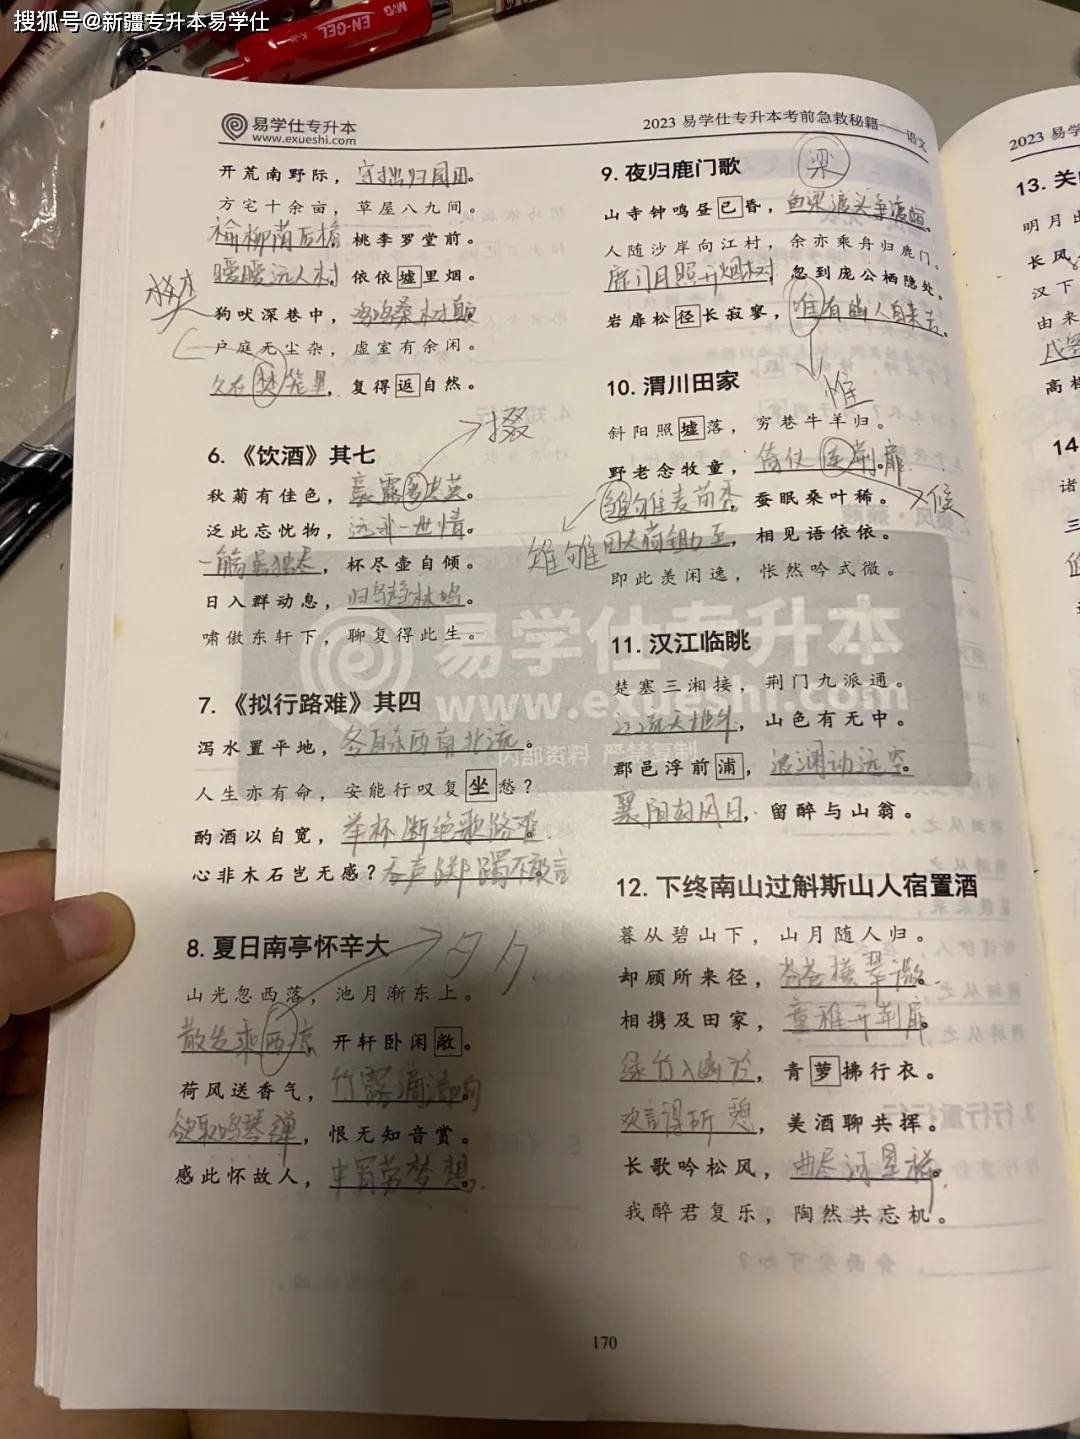 搜狐号@新疆专升本易学仕
EN-GEL
易学仕专升本
www.exueshi.com
2023 易学仕专升本考前急救秘籍——语文
2023 易学
开荒南野际，守拙归园田。
方宅十余亩，草屋八九间。
榆柳荫后檐 桃李罗堂前。
暧暧远人村 依依墟里烟。
狗吠深巷中，鸡鸣桑树颠
户庭无尘杂，虚室有余闲。
久在樊笼里，复得返自然。
6. 《饮酒》其七
掇
秋菊有佳色，裛露其英。
泛此忘忧物，远我一世情。
一觞虽独尽，杯尽壶自倾。
日入群动息，归鸟趋林鸣。
啸傲东轩下，聊复得此生。
7. 《拟行路难》其四
泻水置平地，各自东西南北流。
人生亦有命，安能行叹复坐愁？
酌酒以自宽，举杯断绝歌路难.
心非木石岂无感？吞声踯躅不敢言
8. 夏日南亭怀辛大
夕夕
山光忽西落，池月渐东上。
散发乘凉，开轩卧闲敞。
荷风送香气，竹露滴清响
欲取鸣琴弹，恨无知音赏。
感此怀故人，中宵劳梦想.
9. 夜归鹿门歌
梁
山寺钟鸣昼已昏，鱼梁渡头争渡喧。
人随沙岸向江村，余亦乘舟归鹿门。
鹿门月照开烟树，忽到庞公栖隐处。
岩扉松径长寂寥，唯有幽人自来去。
惟
10. 渭川田家
斜阳照墟落，穷巷牛羊归。
野老念牧童，倚仗荆扉
候
雉雊麦苗秀，蚕眠桑叶稀。
雉雊
田夫荷锄至，相见语依依。
即此羡闲逸，怅然吟式微。
11. 汉江临眺
楚塞三湘接，荆门九派通。
江流天地外，山色有无中。
郡邑浮前浦，波澜动远空。
襄阳好风日，留醉与山翁。
12. 下终南山过斛斯山人宿置酒
暮从碧山下，山月随人归。
却顾所来径，苍苍横翠微.
相携及田家，童稚开荆扉。
绿竹入幽径，青萝拂行衣。
欢言得所憩，美酒聊共挥。
长歌吟松风，曲尽河星稀。
我醉君复乐，陶然共忘机。
易学仕专升本
www.exueshi.com
内部资料 严禁复制
170
13. 关
明月出
长风
汉下
由来
高
14
诸
三